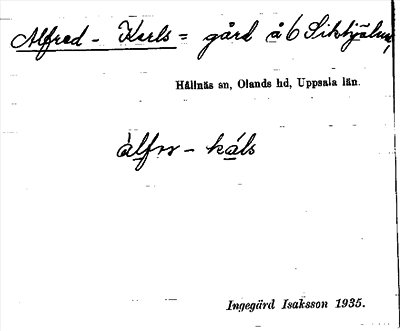 Alfred - Karls = gård å 6 Sikhjälma,
Hållnäs sn, Olands hd, Uppsala län.
àlfrr - káls
Ingegärd Isaksson 1935.